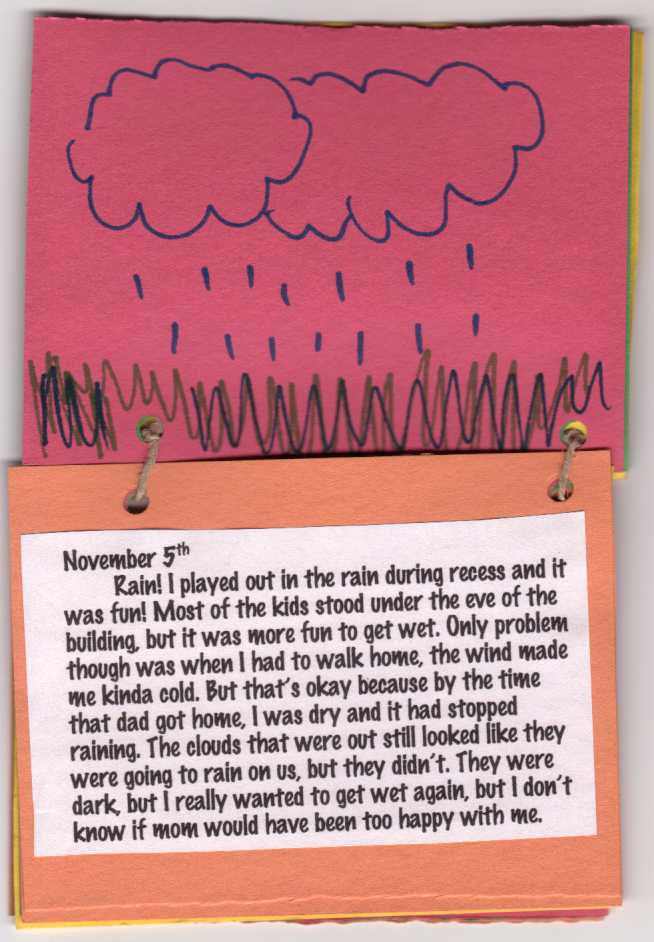 November 5th
Rain! I played out in the rain during recess and it
was fun! Most of the kids stood under the eve of the
building, but it was more fun to get wet. Only problem
though was when I had to walk home, the wind made
me kinda cold. But that's okay because by the time
that dad got home, I was dry and it had stopped
raining. The clouds that were out still looked like they
were going to rain on us, but they didn't. They were
dark, but I really wanted to get wet again, but I don't
know if mom would have been too happy with me.